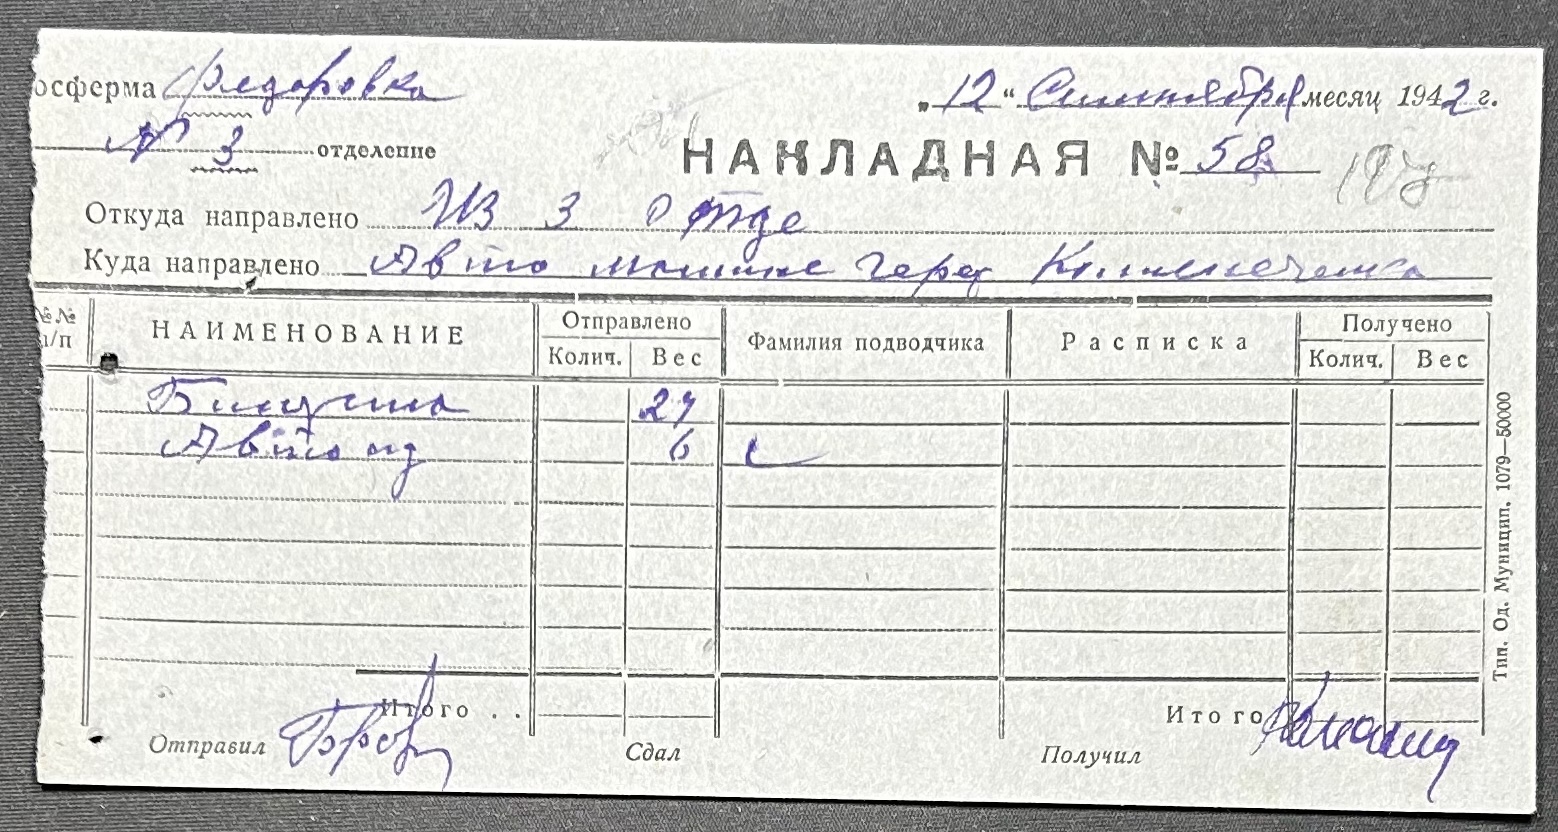 осферма Федоровка
„12“ Сентября месяц 1942 г.
№ 3 отделение
НАКЛАДНАЯ № 58
Откуда направлено Из 3 Отде
Куда направлено Авто машине Через
№№ п/п НАИМЕНОВАНИЕ Отправлено Фамилия подводчика Расписка Получено
Колич. Вес Колич. Вес
Бинзина 27
Автол 6
Итого . . Итого
Отправил Сдал Получил
Тип. Од. Муницип. 1079—50000